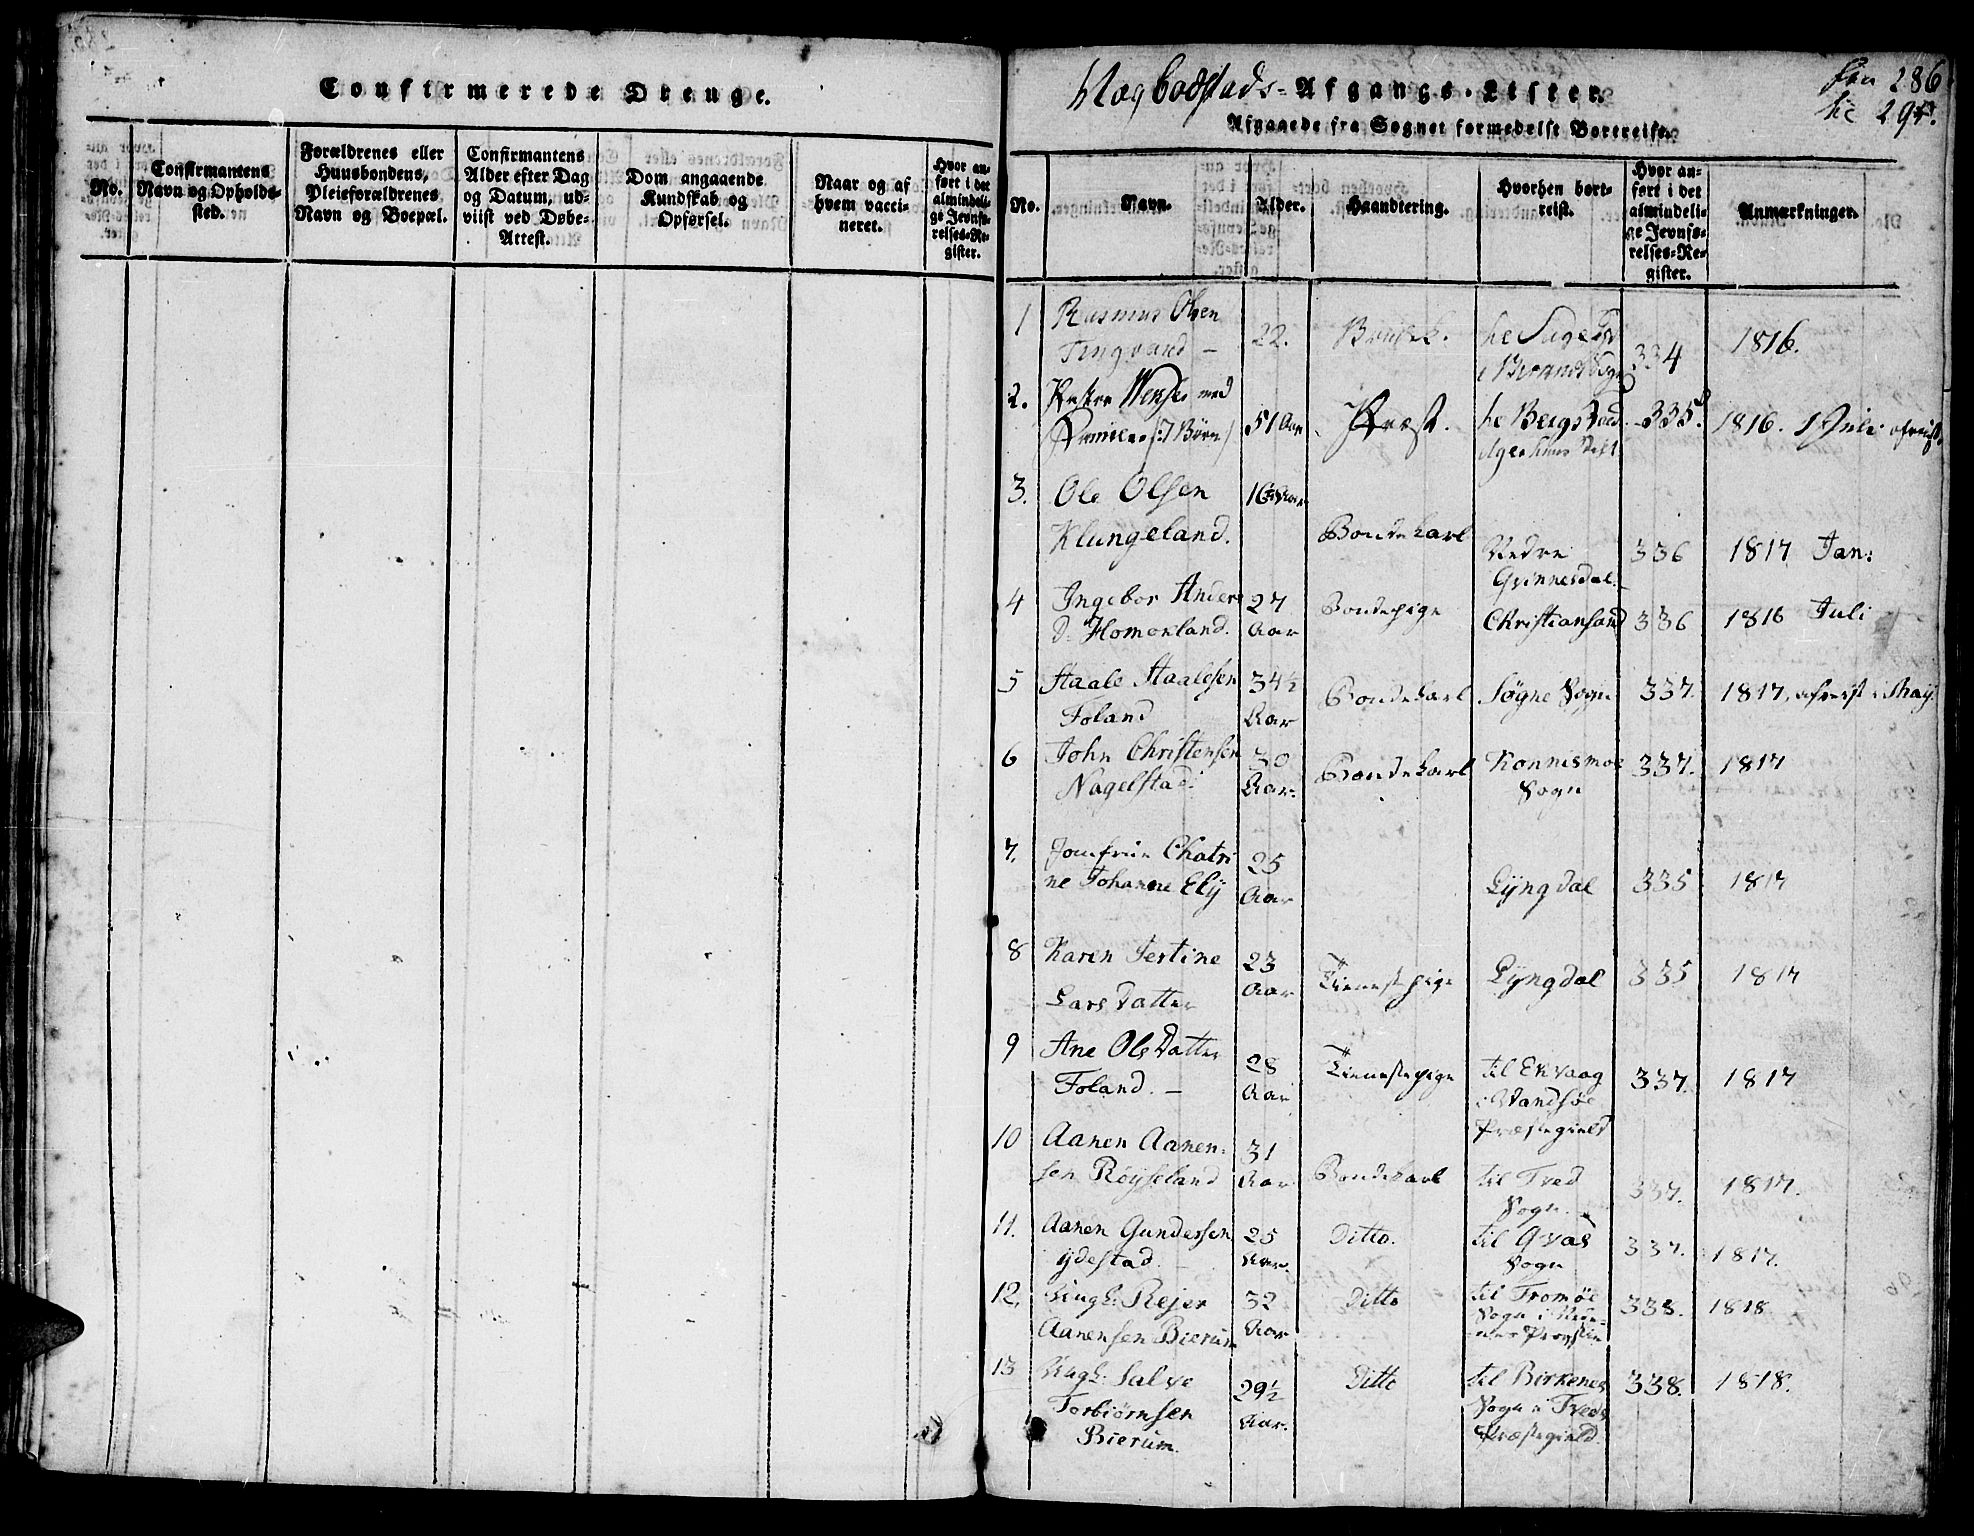 Confirmerede Drenge.
No.
Confirmantens
Navn og Opholds-
sted.
Forældrenes eller
Huusbondens,
Pleieforældrenes
Navn og Boepæl.
Confirmantens
Alder efter Dag
og Datum, ud-
viist ved Døbe-
Attest.
Dom angaaende
Kundskab og
Opførsel.
Naar og af
hvem vacci-
neret.
Hvor an-
ført i det
almindeli-
ge Jevnfø-
relses-Re-
gister.
Afgangs-Lister.
286
Afgaaede fra Sognet formedelst Bortreise.
No.
Navn.
Alder.
Haandtering.
Hvorhen bort-
reist.
Hvor an-
ført i det
almindeli-
ge Jevnfø-
relses-Re-
gister.
Anmærkninger.
1
Rasmus Olsen
22.
334
1816.
2.
med
51 Aar
Præst.
335.
1816. 1 Juli afreist
3.
Ole Olsen
Klungeland.
16 Aar
Bondekarl
Nedre
336
1817 Jan:
4
Ingebor Anders
D: Homonland.
27
Aar
Bondepige
Christiansand
336
1816 Juli
5
Staale Staalesen
Foland
34½
Aar
Bondekarl
Søgne Sogn
337.
1817, afreist i May
6
John Christensen
Nagelstad.
30
Aar.
Bondekarl
Konnismoe
Sogn
337.
1817
7.
Jomfrue Chatri
ne Johanne Ely
25
Aar
Lyngdal
335
1817
8
Karen Jertine
Lars Datter
23
Aar
Tienestepige
Lyngdal
335
1817
9
Ane Ols Datter
Foland. —
28
Aar
Tienestepige
til Ekvaag
i Vandsøe
Præstegield
337.
1817
10
Aanen Aanen-
sen Røyseland
31
Aar
Bondekarl
til Tved
Sogn.
337.
1817.
11.
Aanen Gundersen
Ydestad.
25
Aar.
Ditto.
til Qvas
Sogn
337.
1817.
12.
Ungk: Rejer
Aanensen Bierum
32
Aar
Ditto
til Tromøe
Sogn i
338.
1818
13
Ungk: Salve
Torbiørnsen
Bierum.
29½
Aar.
Ditto
til Birkenes
Sogn i Tveds
Præstegield.
338.
1818.